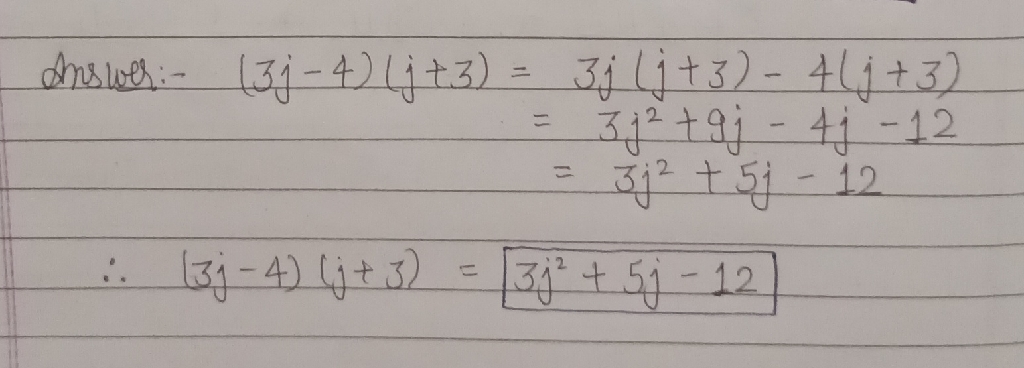 Answer:- (3j-4)(j+3) = 3j(j+3) - 4(j+3)
= 3j² + 9j - 4j - 12
= 3j² + 5j - 12
∴ (3j-4)(j+3) = 3j² + 5j - 12